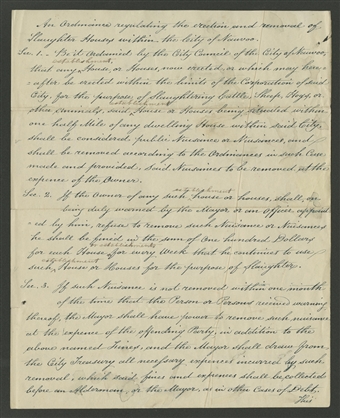 An Ordinance regulating the erection and removal of
Slaughter Houses within the City of Nauvoo.
Sec. 1. Be it ordained by the City Council of the City of Nauvoo,
establishment,
that any House, or Houses, now erected, or which may here-
after be erected within the limits of the Corporation of said
City, for the purposes of Slaughtering Cattle, Sheep, Hogs, or
establishment
other animals, said House or Houses being situated within
one half Mile of any dwelling House within said City,
shall be considered public Nuisance or Nuisances, and
shall be removed according to the Ordinances in such Case
made and provided. Said Nuisances to be removed at the
expence of the Owner.
establishment
Sec. 2. If the Owner of any such house or houses, shall, on
being duly warned by the Mayor, or an Officer appoint-
ed by him, refuse to remove such Nuisance or Nuisances
he shall be fined in the sum of One hundred Dollars
or establishment
for each House for every Week that he continues to use
establishment
such, House or Houses for the purpose of Slaughter.
Sec. 3. If such Nuisance is not removed within one month
of the time that the Person or Persons received warning
thereof, the Mayor shall have power to remove such nuisance
at the expense of the offending Party, in addition to the
above named Fines, and the Mayor shall draw from
the City Treasury all necessary expences incurred by such
removal, which said fines and expences shall be collected
before an Alderman, or the Mayor, as in other Cases of Debt.
This